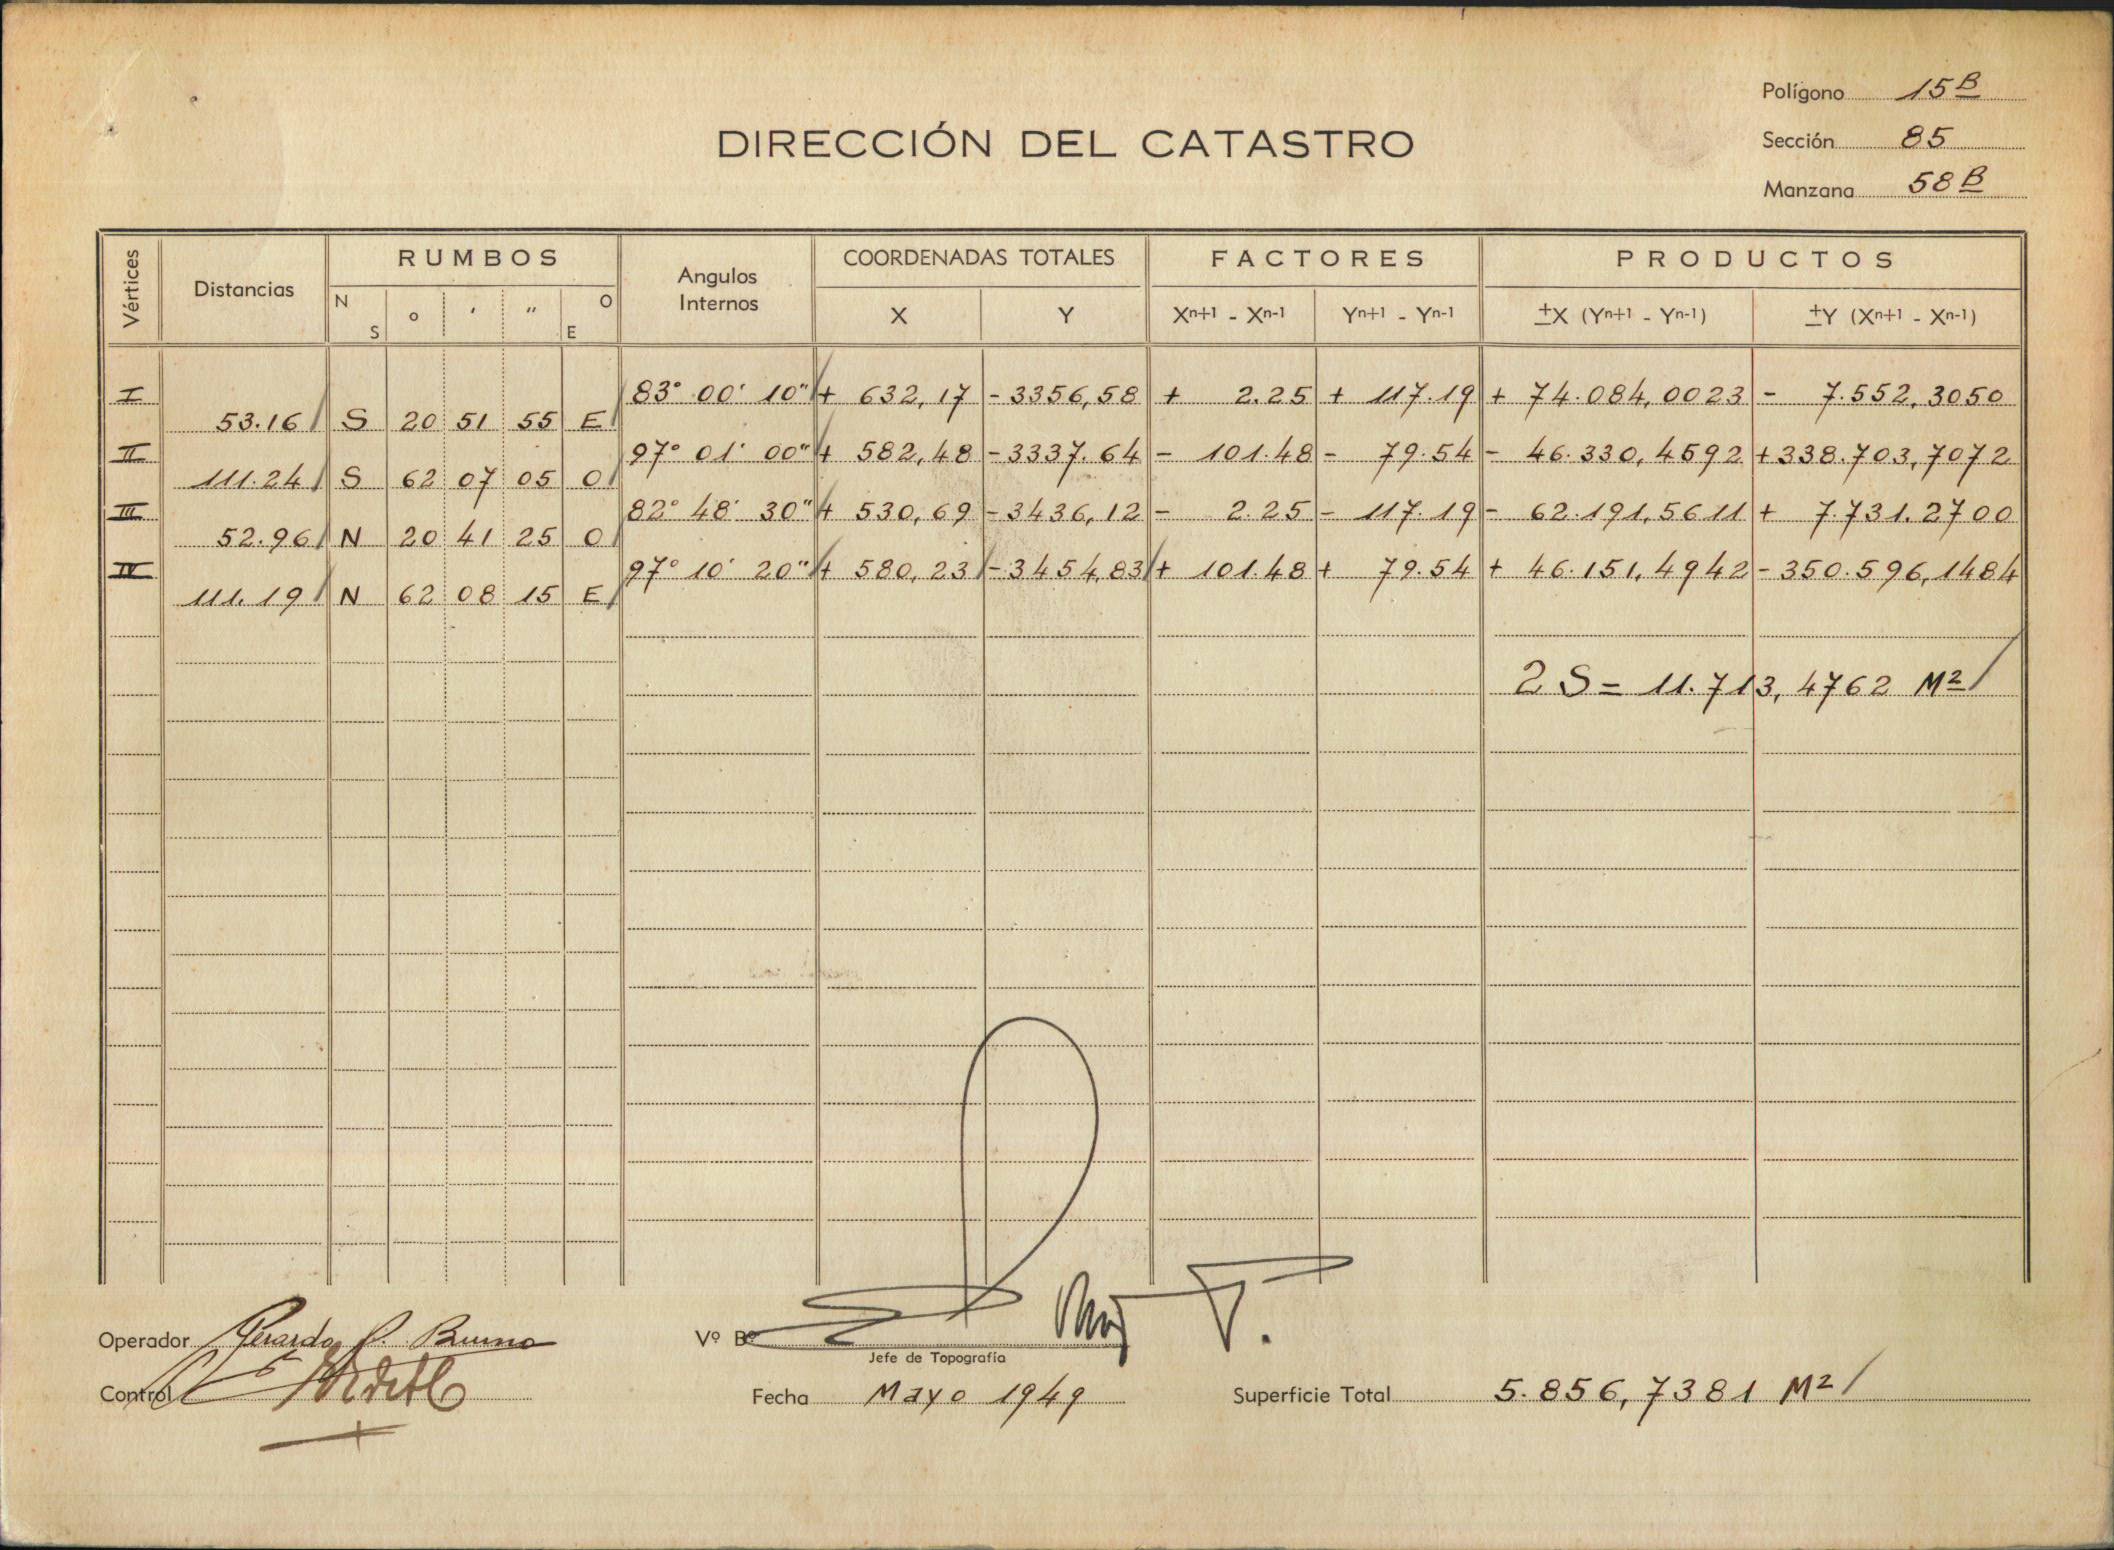 Polígono 15 B
DIRECCIÓN DEL CATASTRO
Sección 85
Manzana 58 B
Vértices Distancias RUMBOS Angulos Internos COORDENADAS TOTALES FACTORES PRODUCTOS
N S o ' " O E X Y Xⁿ⁺¹ - Xⁿ⁻¹ Yⁿ⁺¹ - Yⁿ⁻¹ ±X (Yⁿ⁺¹ - Yⁿ⁻¹) ±Y (Xⁿ⁺¹ - Xⁿ⁻¹)
I 83° 00' 10" + 632,17 - 3356,58 + 2.25 + 117.19 + 74.084,0023 - 7.552,3050
53.16 S 20 51 55 E
II 97° 01' 00" + 582,48 - 3337.64 - 101.48 - 79.54 - 46.330,4592 + 338.703,7072
111.24 S 62 07 05 O
III 82° 48' 30" + 530,69 - 3436,12 - 2.25 - 117.19 - 62.191,5611 + 7.731.2700
52.96 N 20 41 25 O
IV 97° 10' 20" + 580,23 - 3454,83 + 101.48 + 79.54 + 46.151,4942 - 350.596,1484
111.19 N 62 08 15 E
2 S = 11.713,4762 M²
Operador Gerardo P. Bruno Vº Bº
Jefe de Topografía
Control Fecha Mayo 1949 Superficie Total 5.856,7381 M²